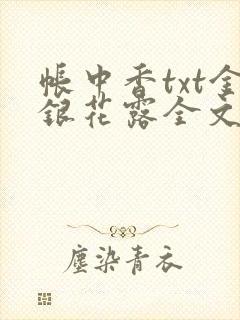 帳中香txt金
銀花露全文
塵染青衣